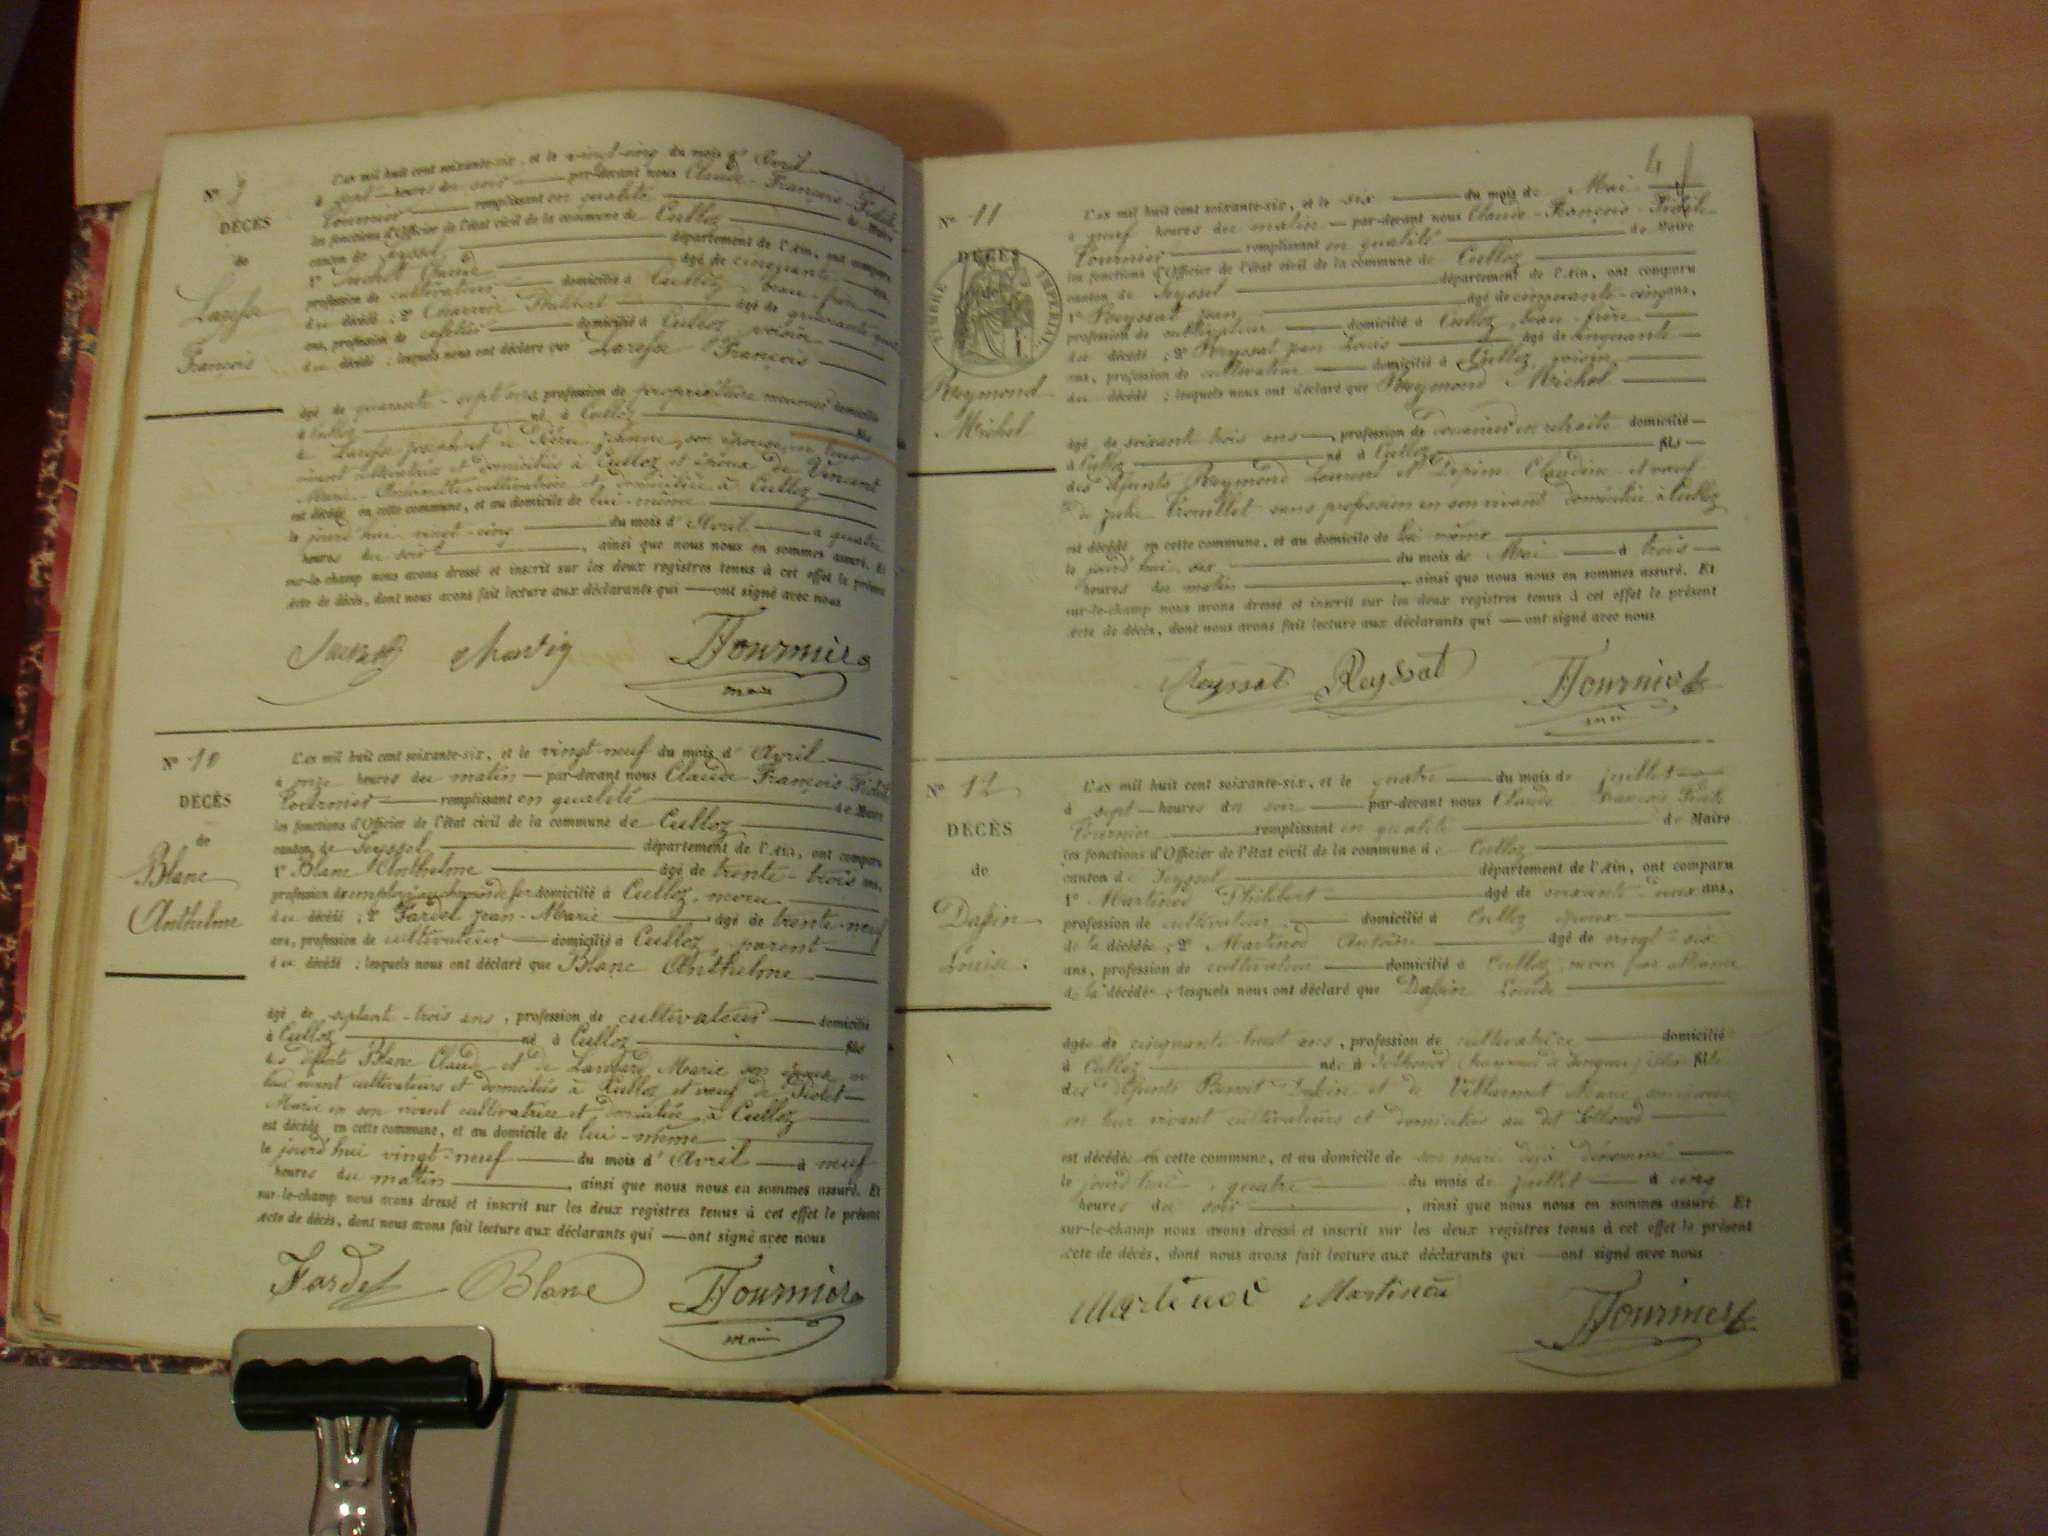 Nº 9
DÉCÈS
de
Larosse
François
L'an mil huit cent soixante-six, et le vingt-cinq du mois d'Avril
à sept heures du soir par-devant nous Claude-François-Fidèle
Fournier remplissant en qualité de Maire
les fonctions d'Officier de l'état civil de la commune de Culloz
canton de Seyssel département de l'Ain, ont comparu
1º Claude âgé de cinquante ans,
profession de cultivateur domicilié à Culloz, beau-frère
du décédé ; 2º Philibert âgé de quarante
ans, profession de domicilié à Culoz voisin
du décédé ; lesquels nous ont déclaré que François
âgé de quarante-sept ans, profession de propriétaire domicilié
à Culloz né à Culloz fils
de Joseph et de son épouse
vivant cultivateurs et domiciliés à Culloz et époux de Vincent
Marie-Antoinette cultivatrice domiciliée à Culloz
est décédé en cette commune, et au domicile de lui-même
le jourd'hui vingt-cinq du mois d'Avril à quatre
heures du soir, ainsi que nous nous en sommes assuré. Et
sur-le-champ nous avons dressé et inscrit sur les deux registres tenus à cet effet le présent
acte de décès, dont nous avons fait lecture aux déclarants qui ont signé avec nous
Fournier
maire
Nº 10
DÉCÈS
de
Blanc
Anthelme
L'an mil huit cent soixante-six, et le vingt-neuf du mois d'Avril
à onze heures du matin par-devant nous Claude François Fidèle
Fournier remplissant en qualité de Maire
les fonctions d'Officier de l'état civil de la commune de Culloz
canton de Seyssel département de l'Ain, ont comparu
1º Blanc Anthelme âgé de trente-trois ans,
profession de employé au chemin de fer domicilié à Culloz, neveu
du décédé ; 2º Fardel Jean-Marie âgé de trente-neuf
ans, profession de cultivateur domicilié à Culloz, parent
du décédé ; lesquels nous ont déclaré que Blanc Anthelme
âgé de septante-trois ans, profession de cultivateur domicilié
à Culloz né à Culloz fils
des défunts Blanc Claude et de Marie son
leur vivant cultivateurs et domiciliés à Culloz et veuf de
Marie en son vivant cultivatrice et domiciliée à Culloz
est décédé en cette commune, et au domicile de lui-même
le jourd'hui vingt-neuf du mois d'Avril à neuf
heures du matin, ainsi que nous nous en sommes assuré. Et
sur-le-champ nous avons dressé et inscrit sur les deux registres tenus à cet effet le présent
acte de décès, dont nous avons fait lecture aux déclarants qui ont signé avec nous
Fardel Blanc Fournier
maire
4
Nº 11
DÉCÈS
TIMBRE IMPÉRIAL
Reymond
Michel
L'an mil huit cent soixante-six, et le six du mois de Mai
à neuf heures du matin par-devant nous Claude-François-Fidèle
Fournier remplissant en qualité de Maire
les fonctions d'Officier de l'état civil de la commune de Culloz
canton de Seyssel département de l'Ain, ont comparu
1º Reyssat Jean âgé de cinquante-cinq ans,
profession de cultivateur domicilié à Culloz, beau-frère
du décédé ; 2º Reyssat Jean Louis âgé de cinquante
ans, profession de cultivateur domicilié à Culloz, voisin
du décédé ; lesquels nous ont déclaré que Reymond Michel
âgé de soixante trois ans, profession de douanier en retraite domicilié
à Culloz né à Culloz fils
des défunts Reymond Laurent et Claudine et veuf
de Julie Trouillet sans profession en son vivant domiciliée à Culloz
est décédé en cette commune, et au domicile de lui même
le jourd'hui six du mois de Mai à trois
heures du matin, ainsi que nous nous en sommes assuré. Et
sur-le-champ nous avons dressé et inscrit sur les deux registres tenus à cet effet le présent
acte de décès, dont nous avons fait lecture aux déclarants qui ont signé avec nous
Reyssat Reyssat Fournier
Nº 12
DÉCÈS
de
Dapin
Louise.
L'an mil huit cent soixante-six, et le quatre du mois de juillet
à sept heures du soir par-devant nous Claude François Fidèle
Fournier remplissant en qualité de Maire
les fonctions d'Officier de l'état civil de la commune de Culloz
canton de Seyssel département de l'Ain, ont comparu
1º Martinod Philibert âgé de soixante-deux ans,
profession de cultivateur domicilié à Culloz époux
de la décédée ; 2º Martinod Antoine âgé de vingt-six
ans, profession de cultivateur domicilié à Culloz, neveu par alliance
de la décédée ; lesquels nous ont déclaré que Dapin Louise
âgée de cinquante-huit ans, profession de cultivatrice domiciliée
à Culloz née à fille
des défunts Benoit et de Marie
en leur vivant cultivateurs et domiciliés au dit
est décédée en cette commune, et au domicile de son mari déjà dénommé
le jourd'hui, quatre du mois de juillet à cinq
heures du soir, ainsi que nous nous en sommes assuré. Et
sur-le-champ nous avons dressé et inscrit sur les deux registres tenus à cet effet le présent
acte de décès, dont nous avons fait lecture aux déclarants qui ont signé avec nous
Martinod Martinod Fournier